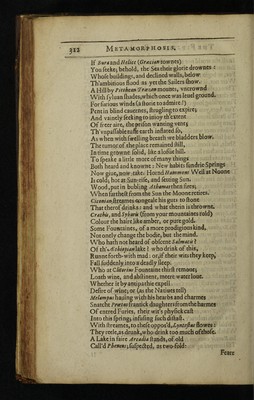 322 METAMORPHOSIS.
If Bura and Helice (Grecian townes)
You seeke; behold, the Sea their glorie drownes:
Whose buildings, and declined walls, below
Th'ambitious flood as yet the Sailers show.
A Hill by Pitthean Trœzen mounts, uncrownd
With sylvan shades, which once was levell ground.
For furious winds (a storie to admire!)
Pent in blind cavernes, strugling to expire;
And vainely seeking to injoy th'extent
Of freer aire, the prison wanting vent;
Th'unpassable earth inflated so,
As when with swelling breath we bladders blow.
The tumor of the place remained still,
In time growne solid, like a loftie hill.
To speake a little more of many things
Both heard and knowne: New habits sundrie Springs
Now give, now take. Horned Hammons Well at Noone
Is cold; hot at Sun-rise, and setting Sun.
Wood, put in bubling Athamas then fires;
When farthest from the Sun the Moone retires.
Ciconian streames congeale his guts to stone
That therof drinks: and what therin is throwne.
Crathis, and Sybaris (from your mountaines rold)
Colour the haire like amber, or pure gold.
Some Fountaines, of a more prodigious kind,
Not onely change the bodie, but the mind.
Who hath not heard of obscene Salmacis?
Of th'Æthiopian lake? who drink of this,
Runne forth-with mad: or, if their wits they keep,
Fall suddenly into a deadly sleep.
Who at Clitorius Fountaine thirst remove;
Loath wine, and abstinent, meere water love.
Whether it by antipathie expell
Desire of wine; or (as the Natives tell)
Melampus having with his hearbs and charmes
Snatcht Prœtus frantick daughters from the harmes
Of entred Furies, their wit's physick cast
Into this spring; infusing such distast.
With streames, to these oppos'd, Lyncestus flowes:
They reele, as drunk, who drink too much of those.
A Lake in faire Arcadia stands, of old
Call'd Pheneus; suspected, as two-fold:
Feare